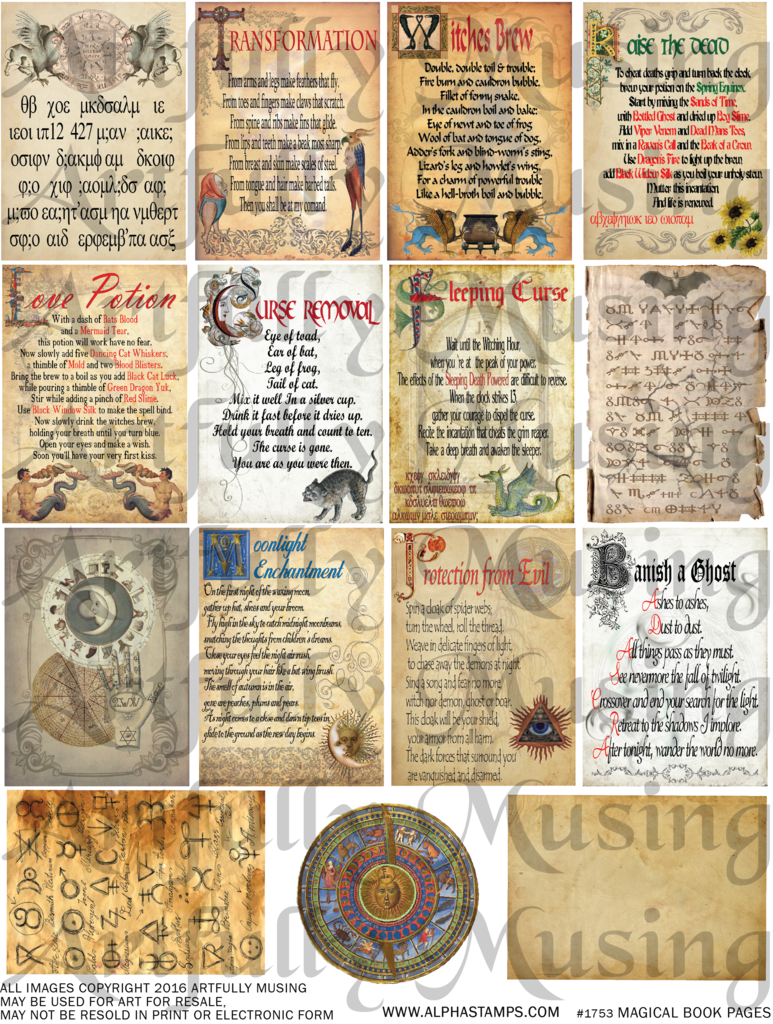 θβ χοε μκδσαλμ ιε
ιεοι ιπ12 427 μ;αν ;αικε;
οσιφν δ;ακμφ αμ δκοιφ
φ;ο χιφ ;αομλ;δσ αφ;
σφ;ο αιδ ερφεμβ'πα ασξ
TRANSFORMATION
From arms and legs make feathers that fly.
From toes and fingers make claws that scratch.
From spine and ribs make fins that glide.
From lips and teeth make a beak most sharp.
From breast and skin make scales of steel.
From tongue and hair make barbed tails.
Then you shall be at my comand.
Witches Brew
Double, double toil & trouble;
Fire burn and cauldron bubble.
Fillet of fenny snake,
In the cauldron boil and bake;
Eye of newt and toe of frog
Wool of bat and tongue of dog,
Adder's fork and blind-worm's sting,
Lizard's leg and howlet's wing,
For a charm of powerful trouble
Like a hell-broth boil and bubble.
Raise the Dead
To cheat deaths grip and turn back the clock,
brew your potion on the Spring Equinex.
Start by mixing the Sands of Time,
with Bottled Ghost and dried up Bog Slime.
Add Viper Venom and Dead Mans Toes,
mix in a Raven's Call and the Beak of a Crow.
Use Dragon's Fire to light up the brew,
add Black Widow Silk as you boil your unholy stew.
Mutter this incantation
And life is renewed.
Love Potion
With a dash of Bats Blood
and a Mermaid Tear,
this potion will work have no fear.
Now slowly add five Dancing Cat Whiskers,
a thimble of Mold and two Blood Blisters.
Bring the brew to a boil as you add Black Cat Luck,
while pouring a thimble of Green Dragon Yuk,
Stir while adding a pinch of Red Slime.
Use Black Window Silk to make the spell bind.
Now slowly drink the witches brew,
holding your breath until you turn blue.
Open your eyes and make a wish.
Soon you'll have your very first kiss.
Curse Removal
Eye of toad,
Ear of bat,
Leg of frog,
Tail of cat.
Mix it well In a silver cup.
Drink it fast before it dries up.
Hold your breath and count to ten.
The curse is gone.
You are as you were then.
Sleeping Curse
13
Wait until the Witching Hour,
when you're at the peak of your power.
The effects of the Sleeping Death Powered are difficult to reverse.
When the clock strikes 13,
gather your courage to dispel the curse.
Recite the incantation that cheats the grim reaper.
Take a deep breath and awaken the sleeper.
Moonlight
Enchantment
On the first night of the waxing moon,
gather up hat, shoes and your broom.
Fly high in the sky to catch midnight moonbeams,
snatching the thoughts from children's dreams.
Close your eyes feel the night air rush,
moving through your hair like a bat wing brush.
The smell of autumn is in the air,
gone are peaches, plums and pears.
As night comes to a close and dawn tip toes in,
glide to the ground as the new day begins.
Protection from Evil
Spin a cloak of spider webs,
turn the wheel, roll the thread.
Weave in delicate fingers of light,
to chase away the demons at night.
Sing a song and fear no more,
witch nor demon, ghost or boar.
This cloak will be your shield,
your armor from all harm.
The dark forces that surround you
are vanquished and disarmed.
Banish a Ghost
Ashes to ashes,
Dust to dust.
All things pass as they must.
See nevermore the fall of twilight.
Crossover and end your search for the light.
Retreat to the shadows I implore.
After tonight, wander the world no more.
ALL IMAGES COPYRIGHT 2016 ARTFULLY MUSING
MAY BE USED FOR ART FOR RESALE,
MAY NOT BE RESOLD IN PRINT OR ELECTRONIC FORM
WWW.ALPHASTAMPS.COM
#1753 MAGICAL BOOK PAGES
Artfully Musing
Artfully Musing
Artfully Musing
Artfully Musing